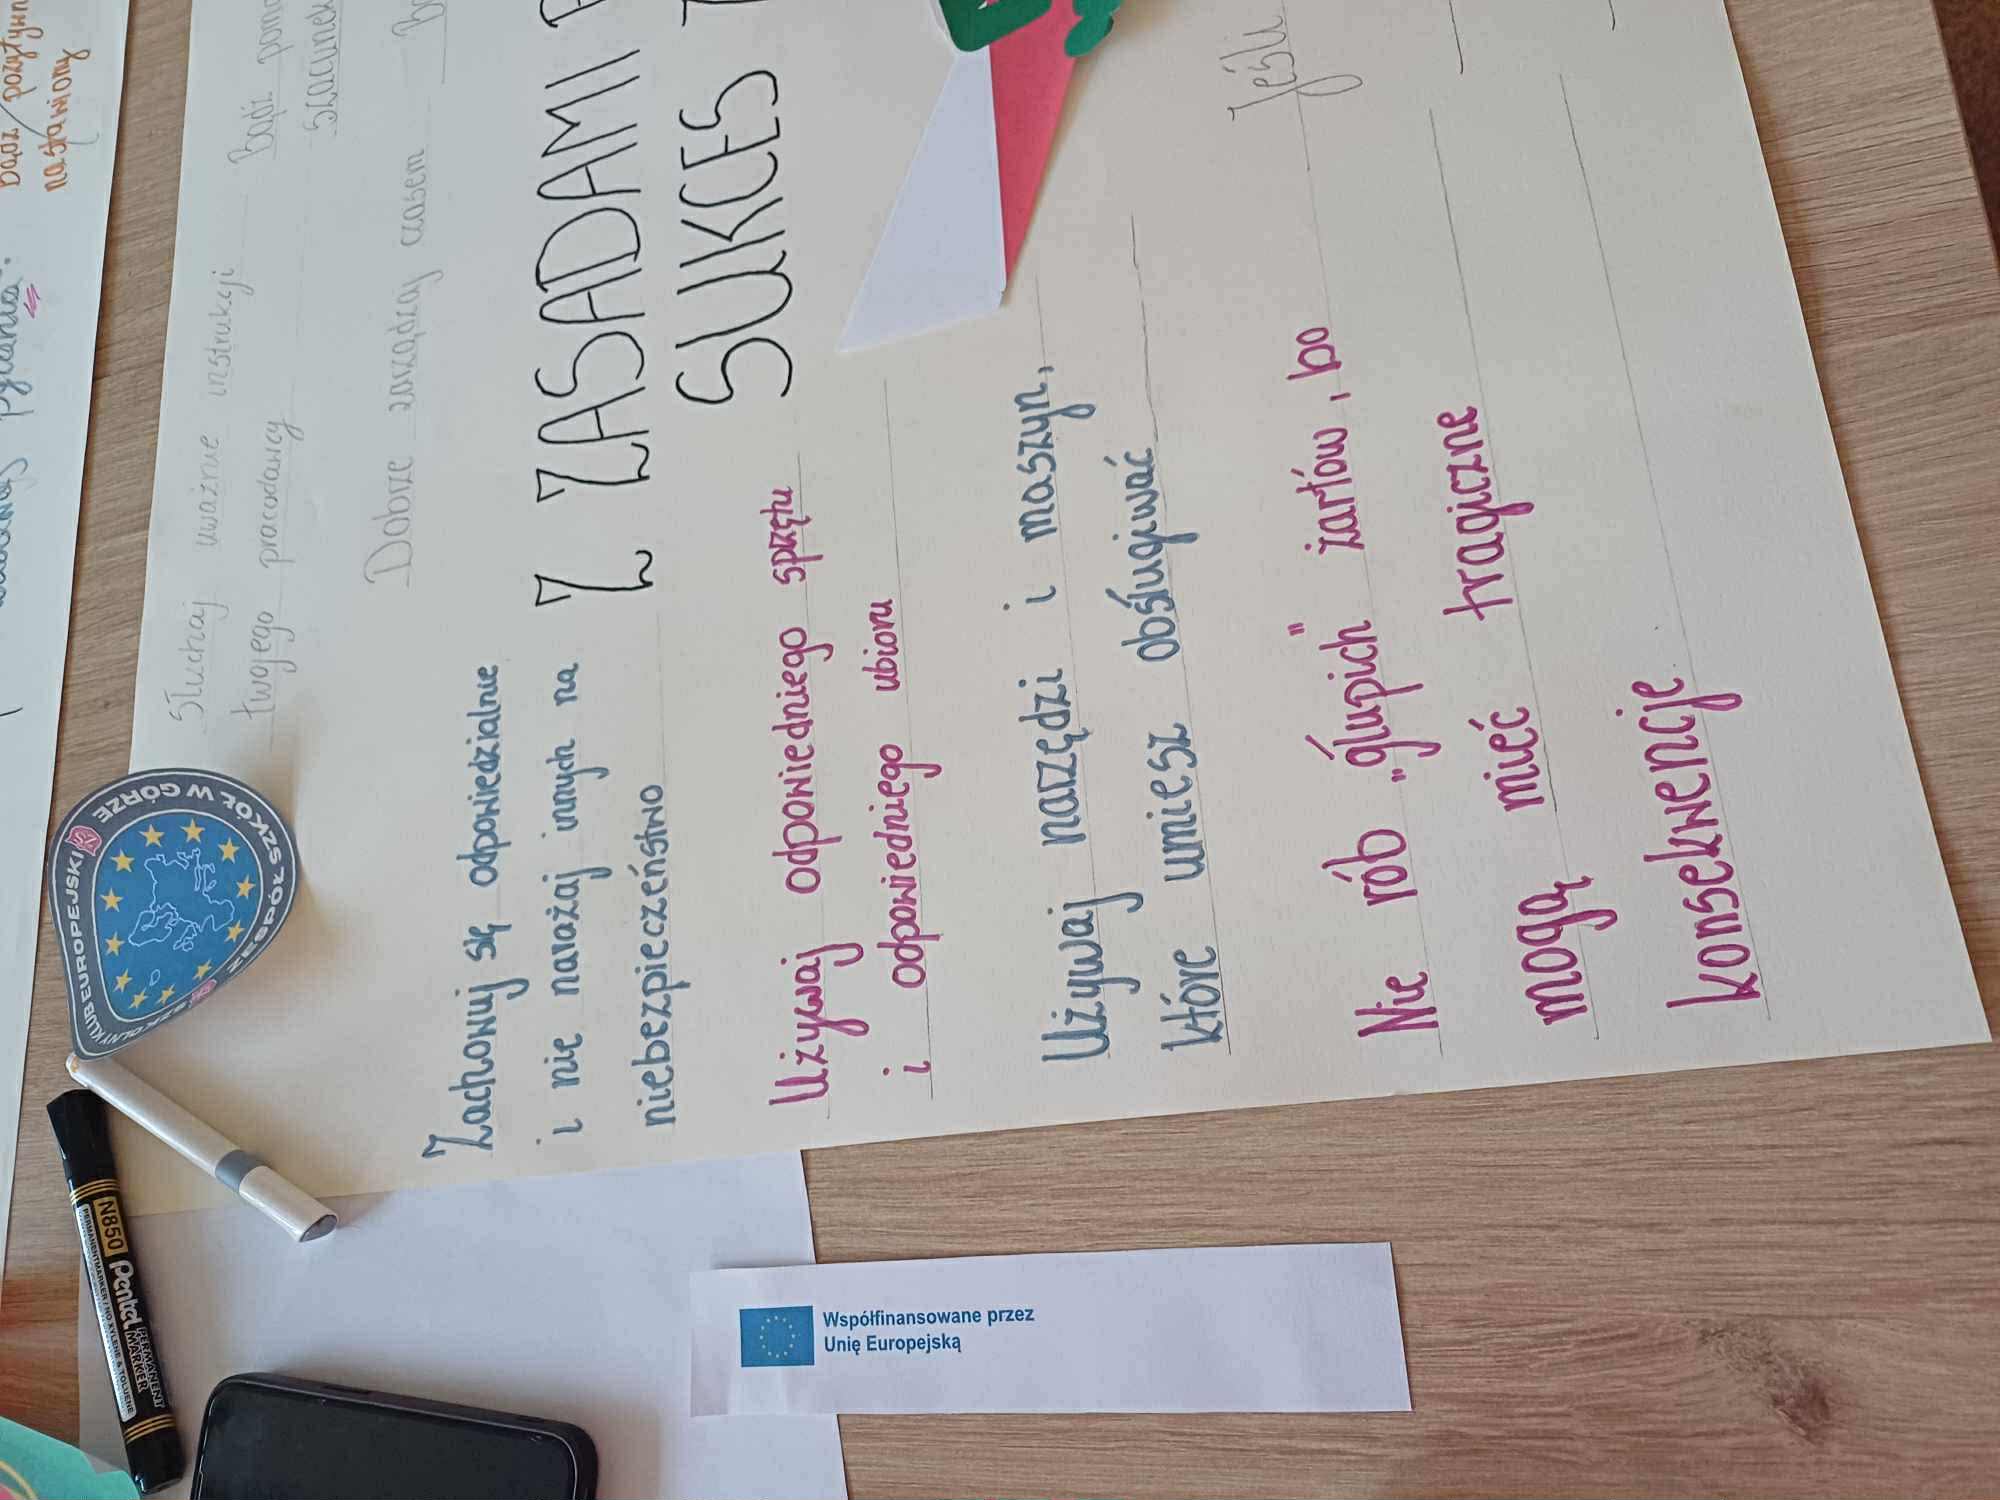 bądź pozytywn
nastawiony
Słuchaj uważnie instrukcji
twojego pracodawcy
Bądź pom
szacunek
Dobrze zarządzaj czasem
Z ZASADAMI
SUKCES
Zachowuj się odpowiedzialnie
i nie narażaj innych na
niebezpieczeństwo
Używaj odpowiedniego sprzętu
i odpowiedniego ubioru
Używaj narzędzi i maszyn,
które umiesz obsługiwać
Nie rób „głupich” żartów, bo
mogą mieć tragiczne
konsekwencje
Jeśli
SZKOLNY KLUB EUROPEJSKI
ZESPÓŁ SZKÓŁ W GÓRZE
N850
Pentel
PERMANENT
MARKER
Współfinansowane przez
Unię Europejską